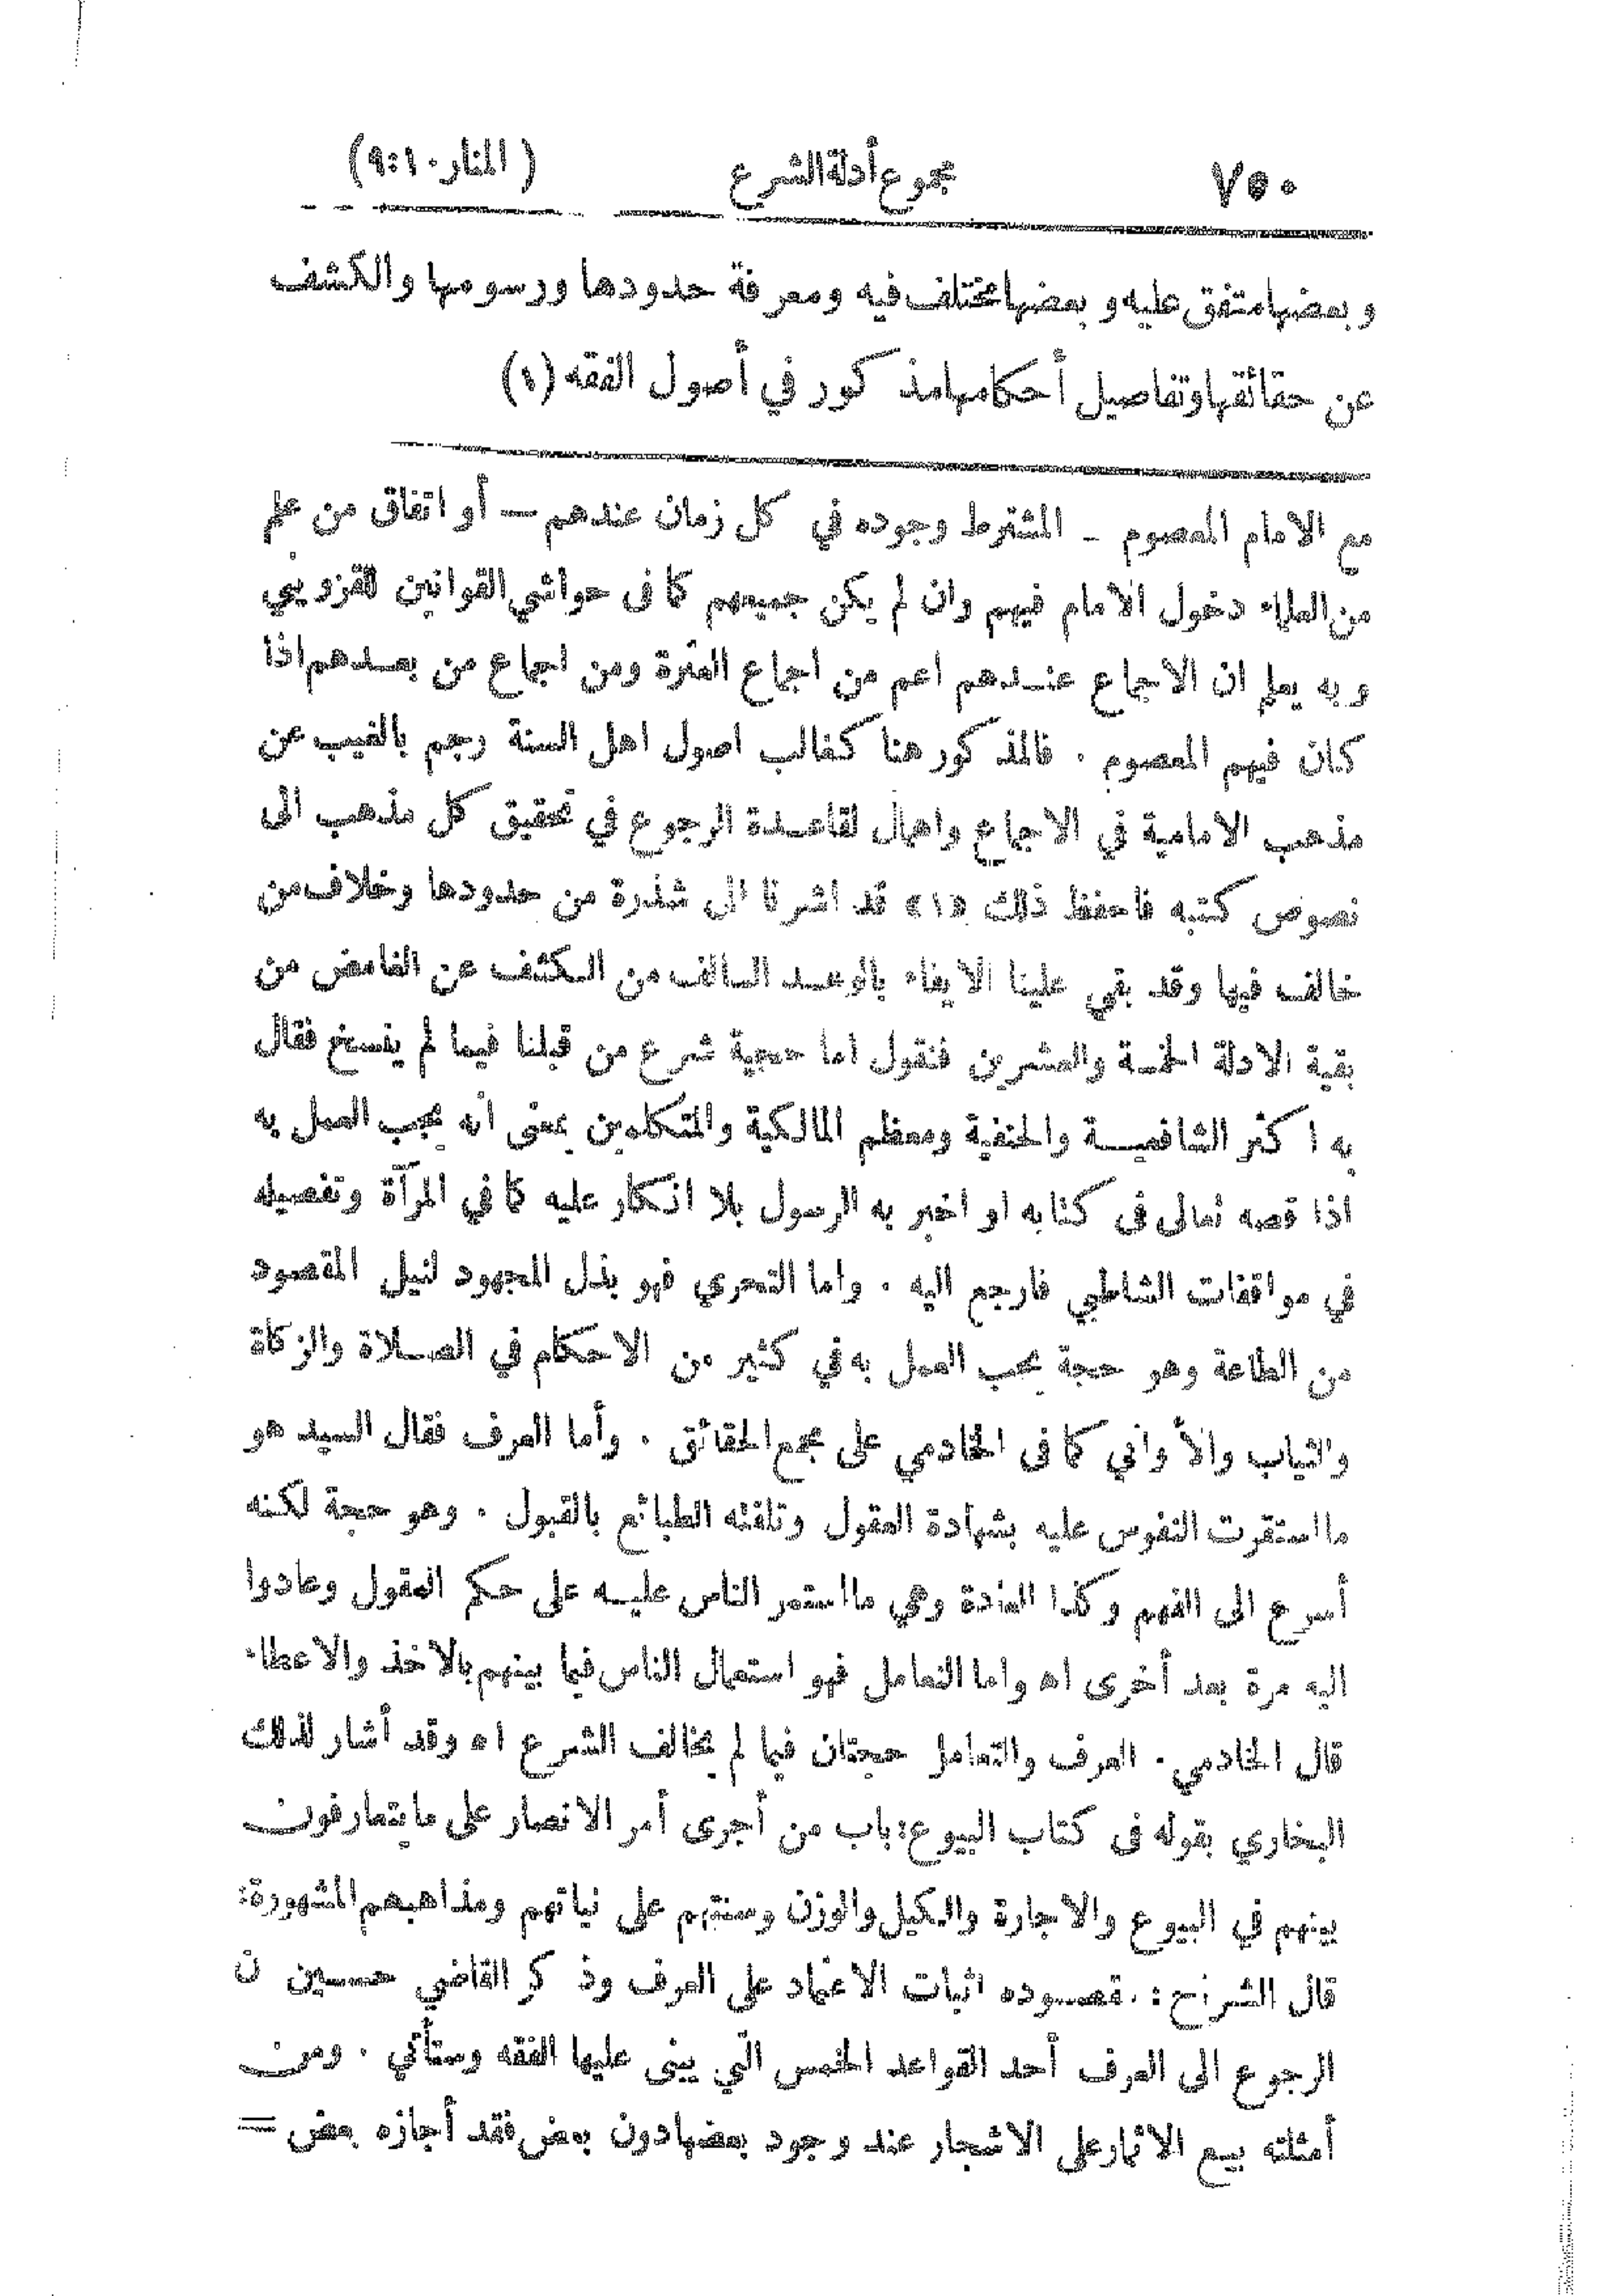 ٧٥٠ مجموع أدلة الشرع (المنار ٩:١٠)
وبعضها متفق عليه وبعضها مختلف فيه ومعرفة حدودها ورسومها والكشف
عن حقائقها وتفاصيل أحكامها مذكور في أصول الفقه (١)
مع الامام المعصوم ـ المشترط وجوده في كل زمان عندهم — أو اتفاق من علم
من العلماء دخول الامام فيهم وان لم يكن جميعهم كما في حواشي القوانين للقزويني
وبه يعلم ان الاجماع عندهم اعم من اجماع العترة ومن اجماع من بعدهم اذا
كان فيهم المعصوم . فالمذكور هنا كغالب اصول اهل السنة رجم بالغيب عن
مذهب الامامية في الاجماع واهمال لقاعدة الرجوع في تحقيق كل مذهب الى
نصوص كتبه فاحفظ ذلك «١» قد اشرنا الى شذرة من حدودها وخلاف من
خالف فيها وقد بقي علينا الايفاء بالوعد السالف من الكشف عن الغامض من
بقية الادلة الخمسة والعشرين فنقول اما حجية شرع من قبلنا فيما لم ينسخ فقال
به اكثر الشافعية والحنفية ومعظم المالكية والمتكلمين بمعنى أنه يجب العمل به
اذا قصه تعالى في كتابه او اخبر به الرسول بلا انكار عليه كما في المرآة وتفصيله
في موافقات الشاطبي فارجع اليه . واما التحري فهو بذل المجهود لنيل المقصود
من الطاعة وهو حجة يجب العمل به في كثير من الاحكام في الصلاة والزكاة
والثياب والأواني كما في الخادمي على مجمع الحقائق . وأما العرف فقال السيد هو
ما استقرت النفوس عليه بشهادة العقول وتلقته الطبائع بالقبول . وهو حجة لكنه
أسرع الى الفهم وكذا العادة وهي ما استمر الناس عليه على حكم العقول وعادوا
اليه مرة بعد أخرى اه واما التعامل فهو استعمال الناس فيما بينهم بالاخذ والاعطاء
قال الخادمي . العرف والتعامل حجتان فيما لم يخالف الشرع اه وقد أشار لذلك
البخاري بقوله في كتاب البيوع: باب من أجرى أمر الانصار على ما يتعارفون
بينهم في البيوع والاجارة والكيل والوزن وسنتهم على نياتهم ومذاهبهم المشهورة:
قال الشراح : مقصوده اثبات الاعتماد على العرف وذكر القاضي حسين ن
الرجوع الى العرف أحد القواعد الخمس التي يبنى عليها الفقه وستأتي . ومن
أمثلته بيع الاثمار على الاشجار عند وجود بعضها دون بعض فقد أجازه بعض =